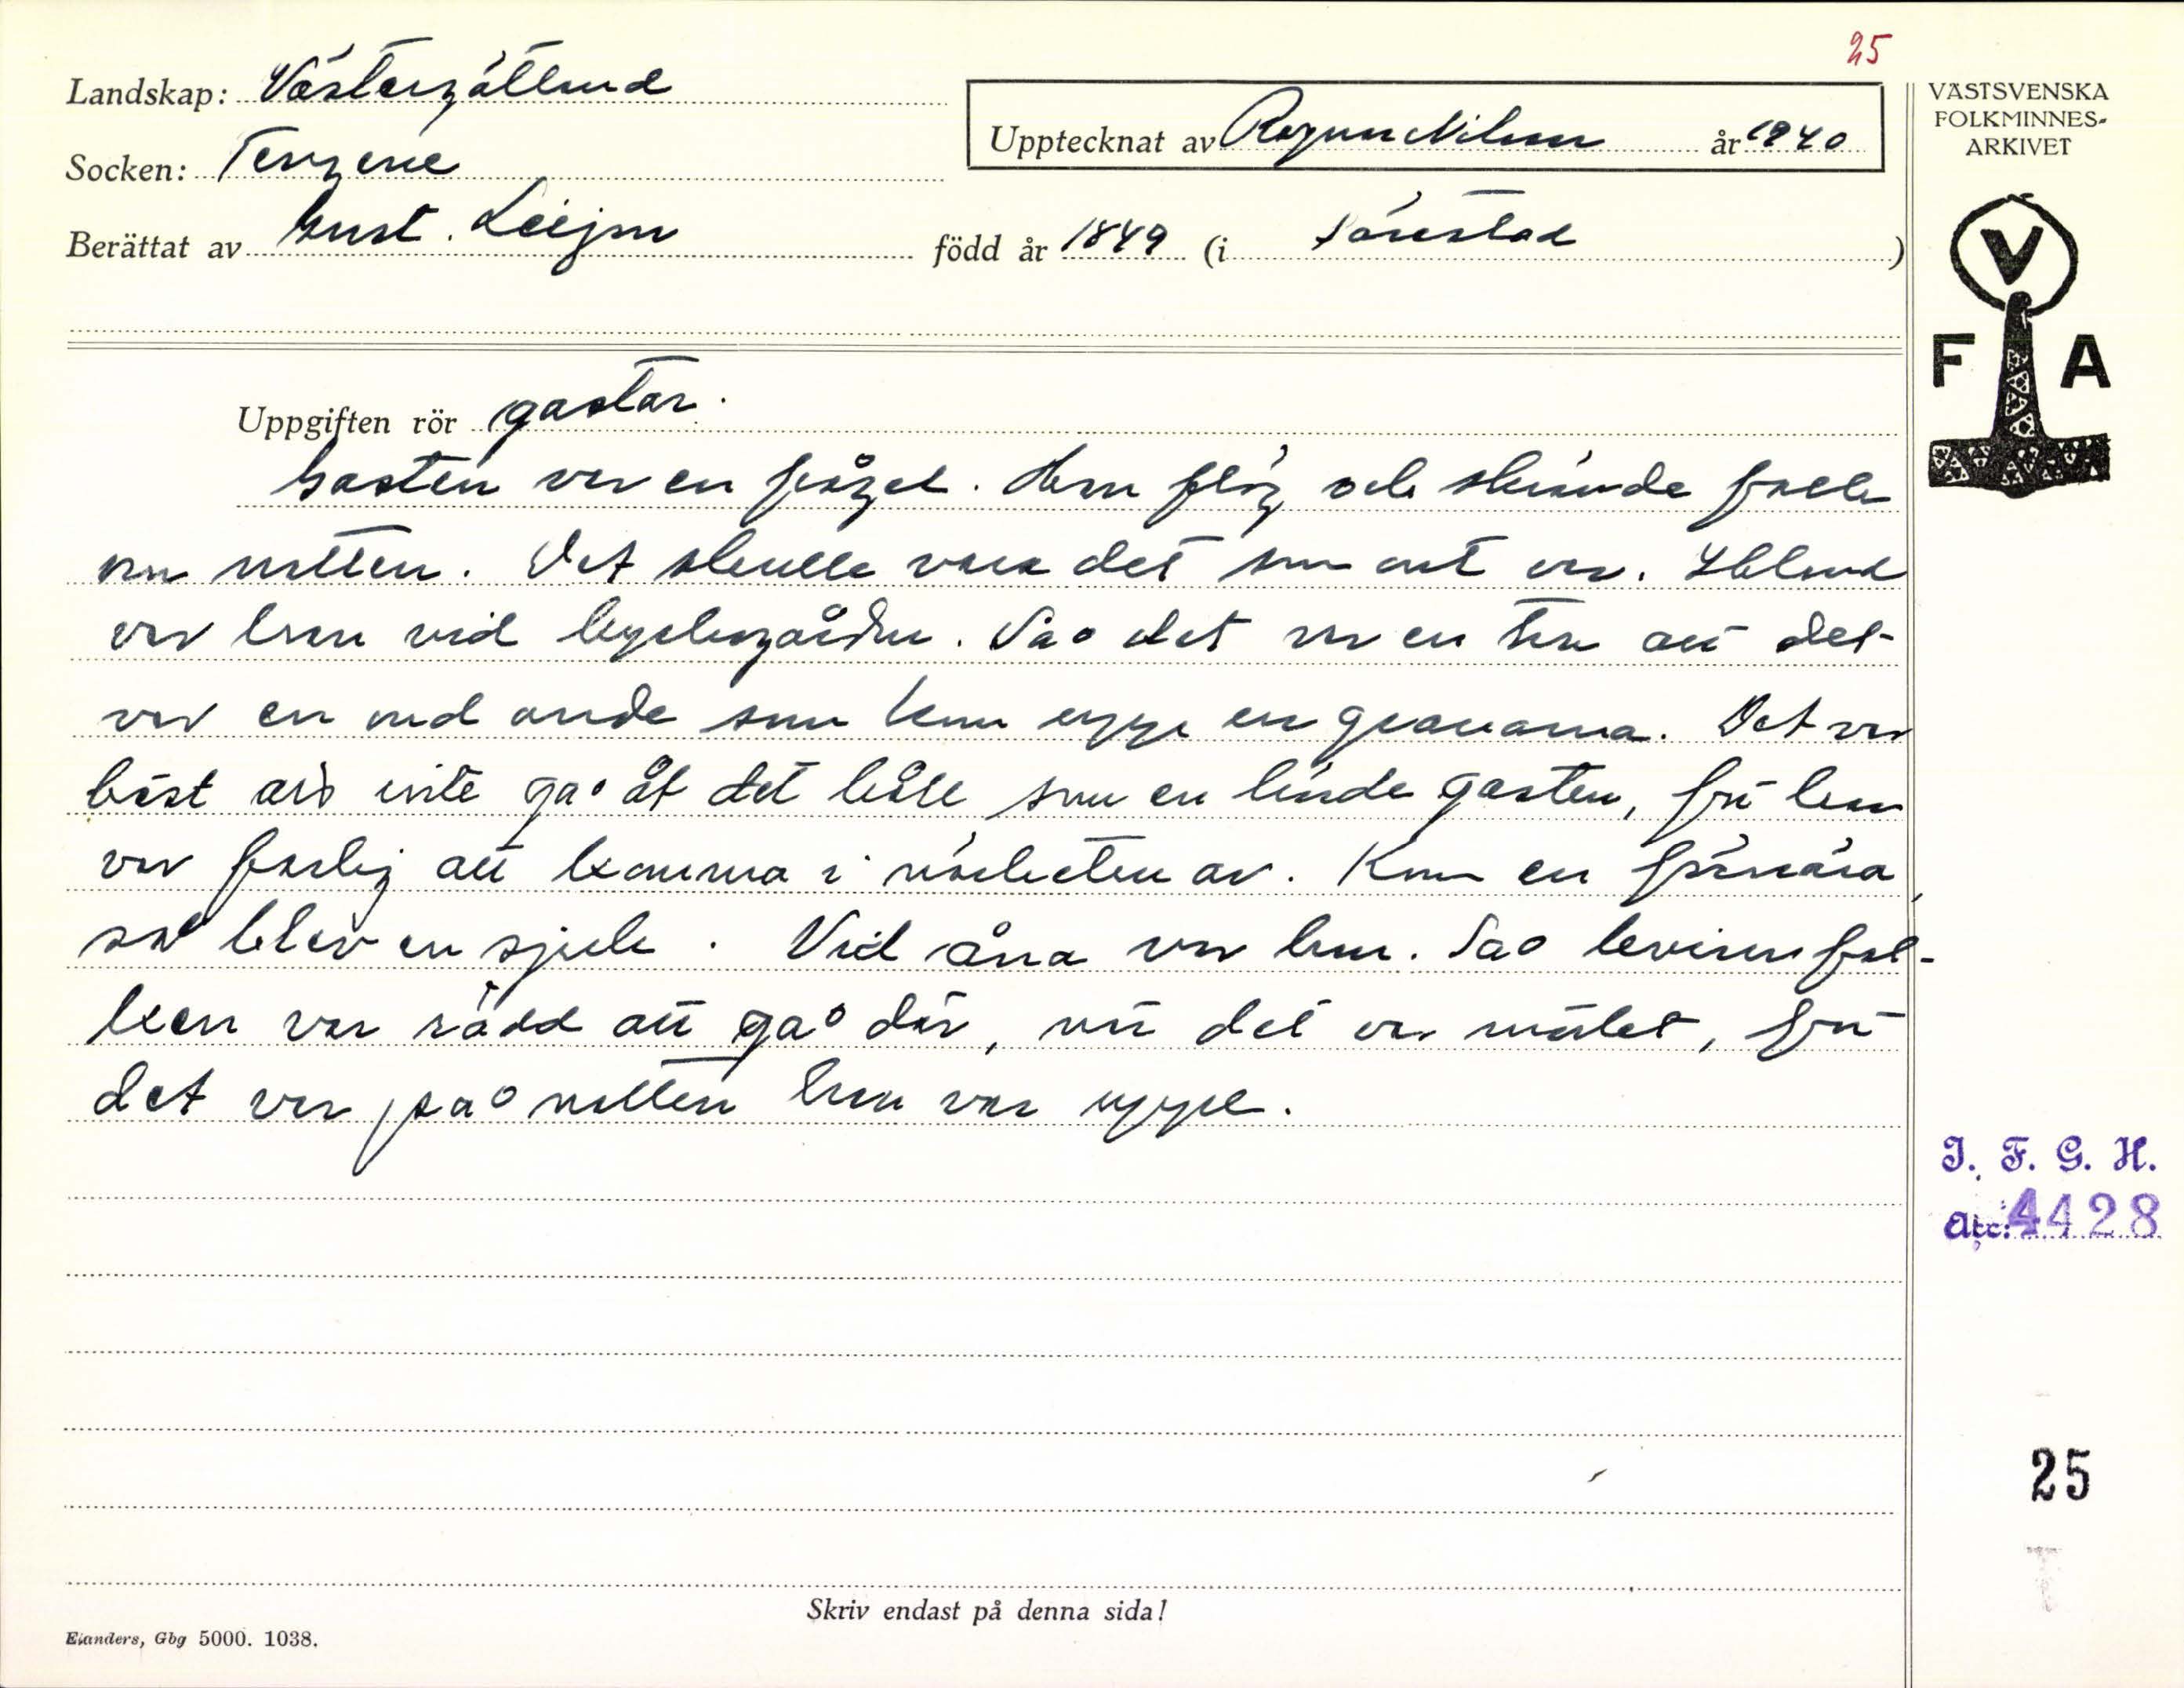 25
Landskap: Västergötland
Upptecknat av Ragnar Nilsson år 1940
VÄSTSVENSKA
FOLKMINNES-
ARKIVET
Socken: Tengene
Berättat av Gust. Leijon född år 1849 (i Särestad)
V
F A
Uppgiften rör gastar.
Gasten var en fågel. Han flög och skrämde folk
om natten. Det skulle vara det som ont var. Ibland
var han vid kyrkogården. Så det var en tro att det
var en ond ande som kom upp ur gravarna. Det var
bäst att inte gå åt det håll som en hörde gasten, för han
var farlig att komma i närheten av. Kom en för nära,
så blev en sjuk. Vid åna var han. Så kvinnfol-
ken var rädd att gå där, när det var mörkt, för
det var på natten han var uppe.
I. F. G. H.
Acc: 4428
25
Skriv endast på denna sida!
Elanders, Gbg 5000. 1038.